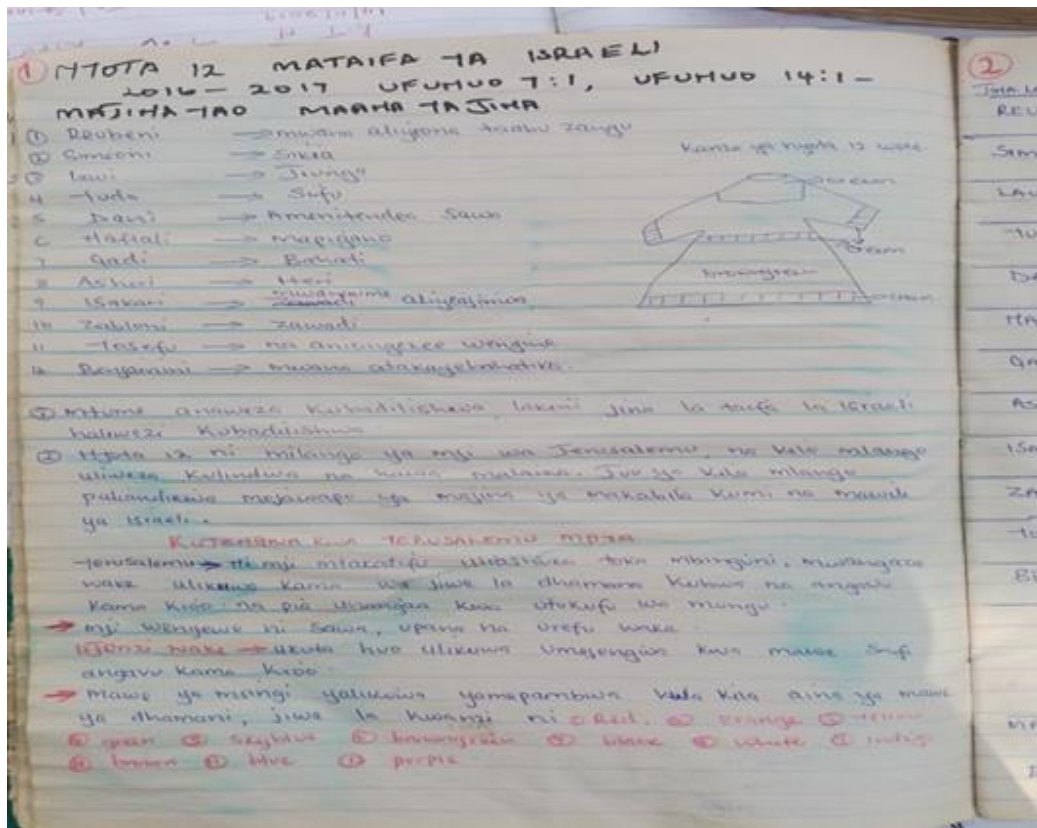 1 NYOTA 12 MATAIFA YA ISRAELI
2016 - 2017 UFUNUO 7:1, UFUNUO 14:1 -
MAJINA YAO MAANA YA JINA
① Reubeni → mwana aliyeona taabu zangu
② Simeoni → Sikia
③ Lawi → Jiunge
4 Yuda → Sifu
5 Dani → Amenitendea Sawa
6 Naftali → Mapigano
7 Gadi → Bahati
8 Asheri → Heri
9 Isakari → mwanaume aliyeajiriwa
10 Zabloni → zawadi
11 Yosefu → na aniongezee wengine
12 Benyamini → mwana
Kanzu ya nyota 12 wote
cream
cream
browngreen
cream
① Mtume anaweza Kubadilishwa lakini jina la taifa la Israeli
haliwezi Kubadilishwa
② Nyota 12 ni milango ya mji wa Jerusalemu, na kila mlango
uliweza Kulindwa na hawa malaika. Juu ya kila mlango
paliandikwa ya majina ya makabila kumi na mawili
ya Israeli.
KUJENGWA KWA YERUSALEMU MPYA
Yerusalemu → Ni mji mtakatifu ulioshuka toka mbinguni, mwangaza
wake ulikuwa kama wa jiwe la dhamana Kubwa na angavu
kama kioo na pia utukufu wa mungu.
→ mji wenyewe ni Sawa, upana na urefu wake
Ujenzi wake → ukuta huo ulikuwa umejengwa kwa mawe Safi
angavu kama kioo
→ Mawe ya msingi yalikuwa yamepambwa kwa kila aina ya mawe
ya dhamani, jiwe la kwanza ni ① Red. ② orange ③ yellow
④ green ⑤ skyblue ⑥ browngreen ⑦ black ⑧ white ⑨ indigo
⑩ brown ⑪ blue ⑫ purple
2
JINA
REU
SIM
LAW
YU
DA
NA
GA
AS
ISA
ZA
YO
BE